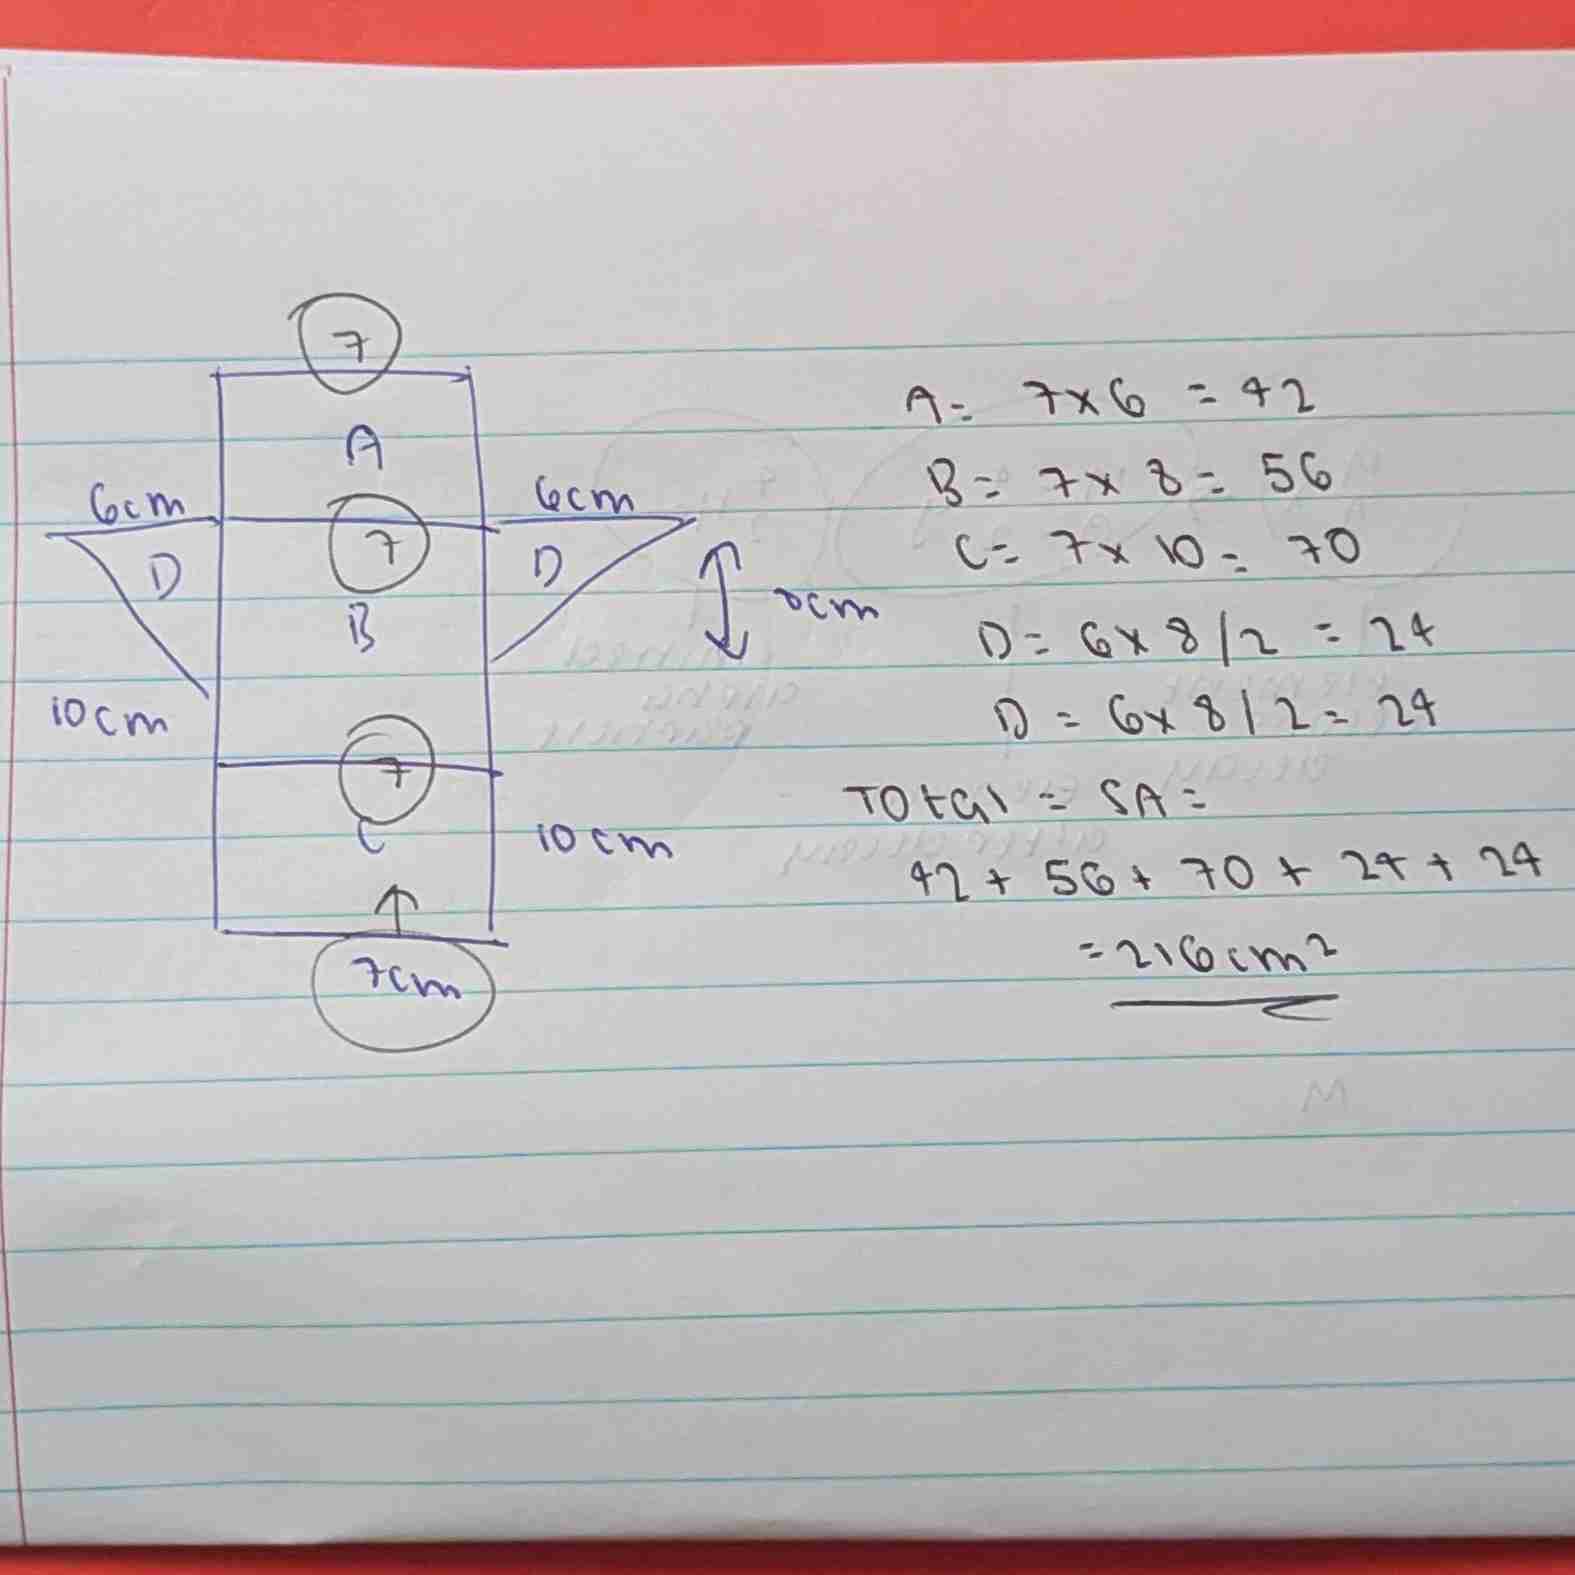 7
A
6cm
6cm
D
7
D
B
8cm
10cm
7
C
10cm
7cm
A= 7x6 = 42
B= 7x 8= 56
C= 7x 10= 70
D= 6x 8/2 = 24
D = 6x 8/2= 24
Total = SA=
42+ 56+ 70 + 24 + 24
=216cm²